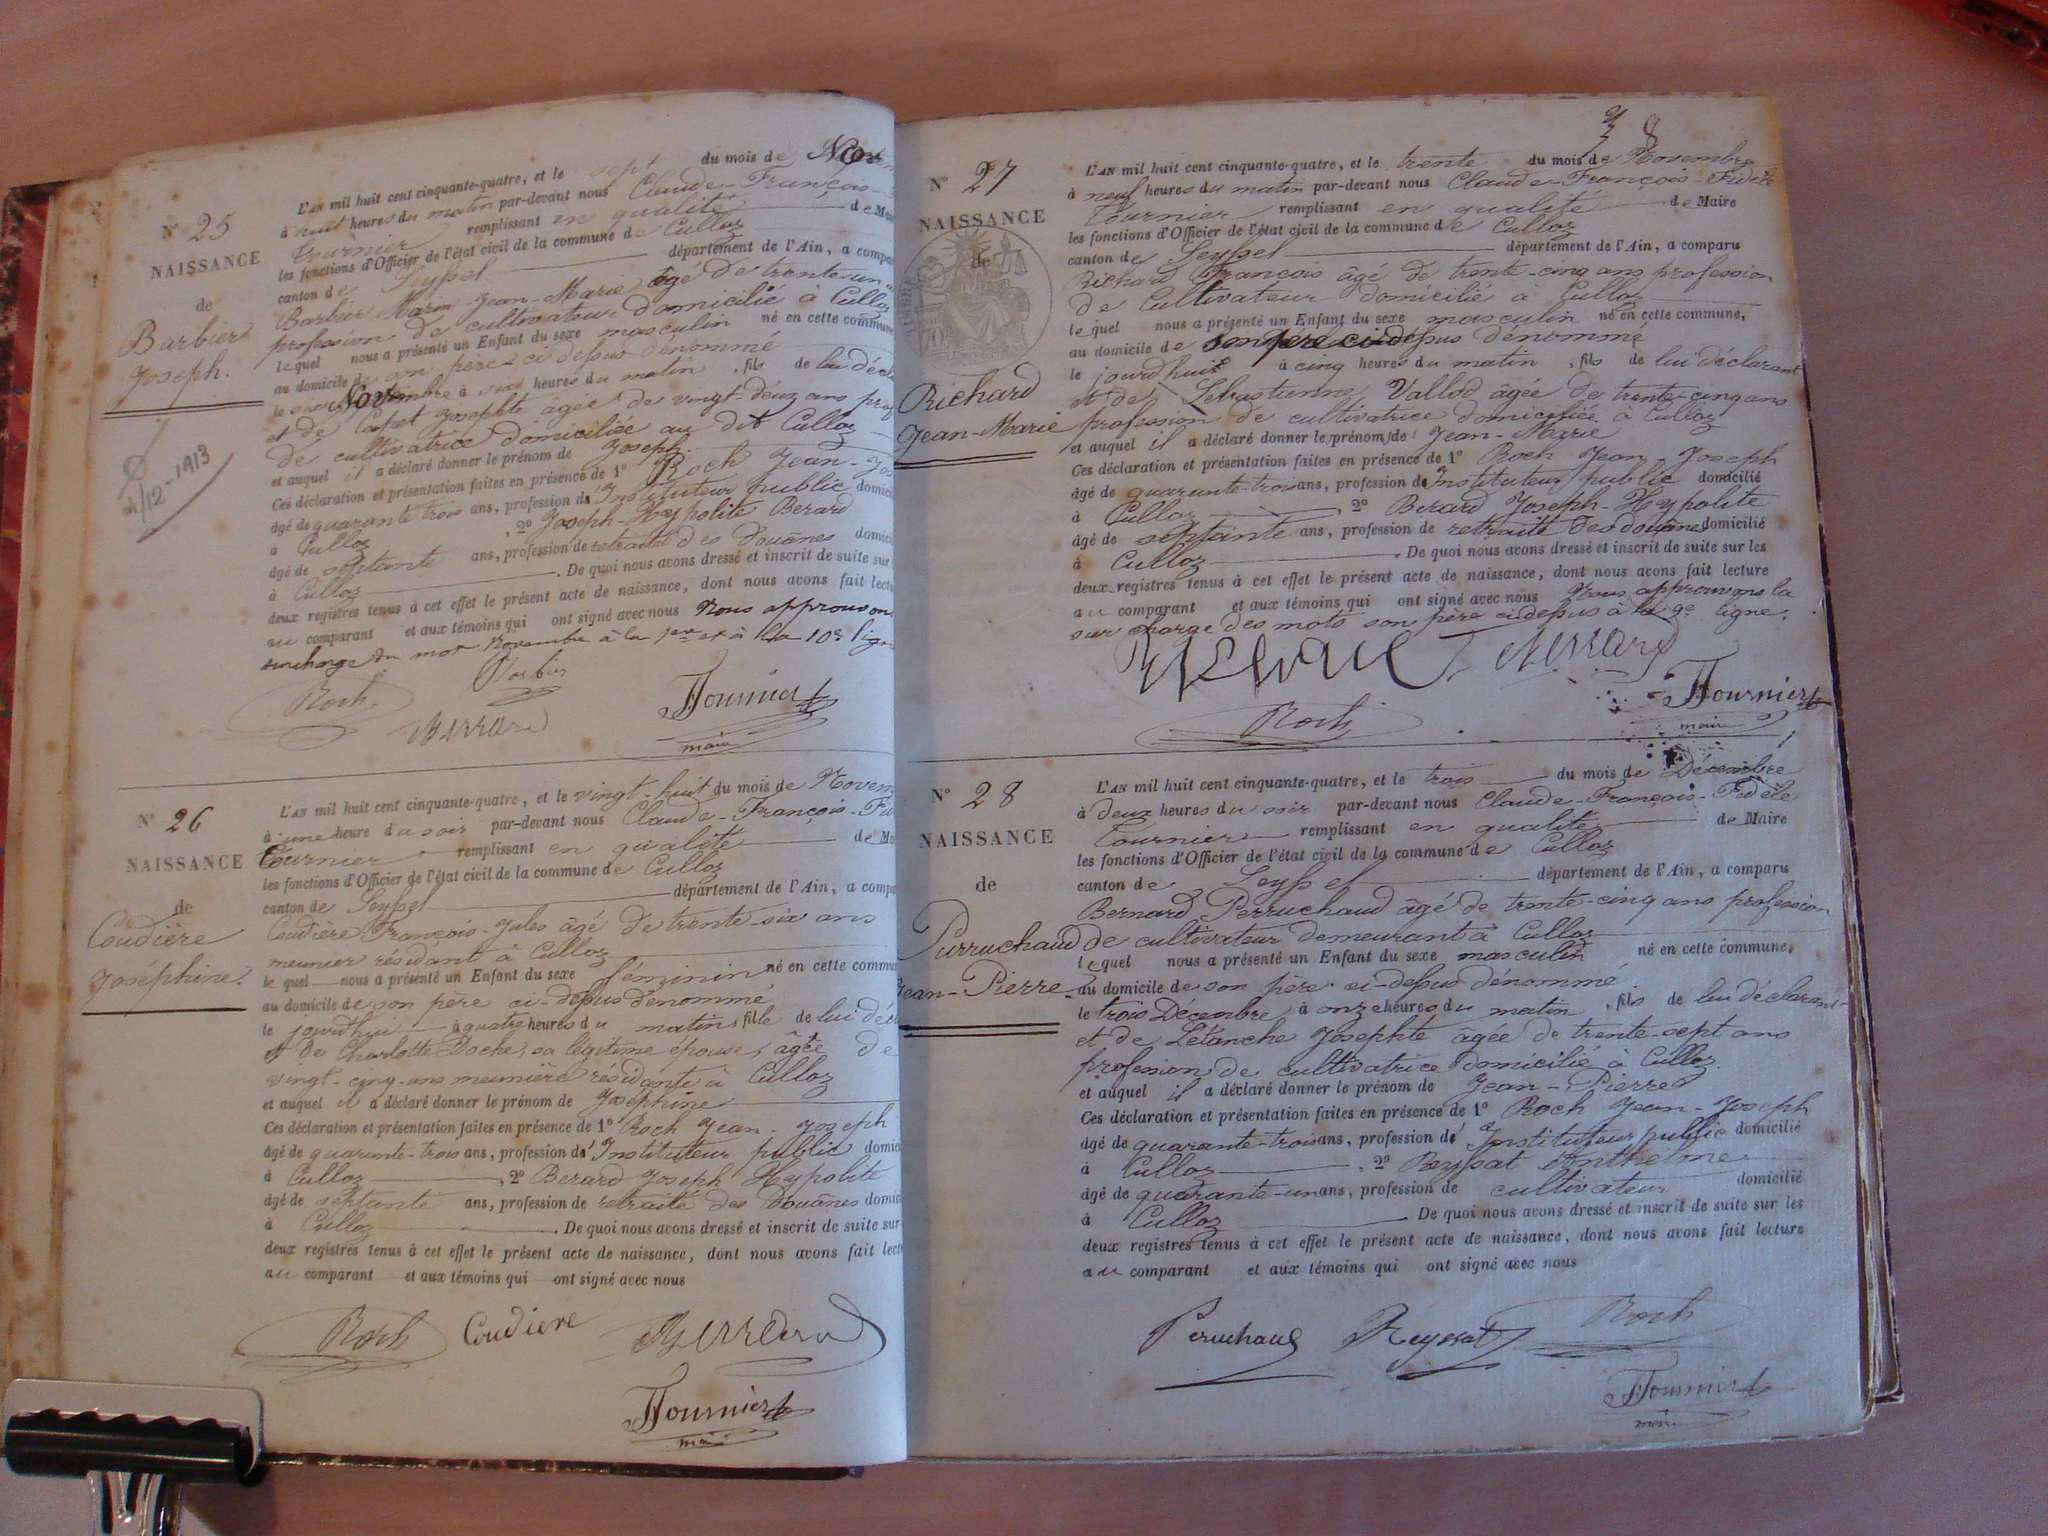 N° 25
NAISSANCE
de
Barbier
Joseph.
12-1913
L'AN mil huit cent cinquante-quatre, et le sept du mois de Nov
à huit heures du matin par-devant nous Claude-François-
Tournier remplissant en qualité de Mai
les fonctions d'Officier de l'état civil de la commune de Culloz
canton de Seyssel département de l'Ain, a compa
Barbier Marin Jean-Marie âgé de trente-un
profession de cultivateur domicilié à Culloz
lequel nous a présenté un Enfant du sexe masculin né en cette commune
au domicile de son père ci dessus dénommé
le six Novembre à heures du matin, fils de lui décl
et de Capet Josephte âgée de vingt-deux ans prof
de cultivatrice domiciliée au dit Culloz
et auquel il a déclaré donner le prénom de Joseph.
Ces déclaration et présentation faites en présence de 1° Roch Jean-Jos
âgé de quarante trois ans, profession d'Instituteur public domici
à Culloz, 2° Joseph-Hypolite Berard
âgé de septante ans, profession de retraité des douanes domici
à Culloz. De quoi nous avons dressé et inscrit de suite sur
deux registres tenus à cet effet le présent acte de naissance, dont nous avons fait lectu
au comparant et aux témoins qui ont signé avec nous Nous approuvons
surcharge du mot Novembre à la 1re et à la 10e lign
Roch Barbier Berrard Tournier
maire
N° 26
NAISSANCE
de
Coudière
Joséphine.
L'AN mil huit cent cinquante-quatre, et le vingt-huit du mois de Novem
à une heure du soir par-devant nous Claude-François-Fi
Tournier remplissant en qualité de Ma
les fonctions d'Officier de l'état civil de la commune de Culloz
canton de Seyssel département de l'Ain, a compa
Coudière François-Jules âgé de trente-six ans
meunier résidant à Culloz
le quel nous a présenté un Enfant du sexe féminin né en cette commun
au domicile de son père ci-dessus dénommé
le jourdhui à quatre heures du matin, fille de lui décl
et de Charlotte Doche, sa légitime épouse, âgée de
vingt-cinq-ans meunière résidante à Culloz
et auquel il a déclaré donner le prénom de Joséphine
Ces déclaration et présentation faites en présence de 1° Roch Jean-Joseph
âgé de quarante-trois ans, profession d'Instituteur public domici
à Culloz, 2° Berard Joseph Hypolite
âgé de septante ans, profession de retraité des Douanes domici
à Culloz. De quoi nous avons dressé et inscrit de suite sur
deux registres tenus à cet effet le présent acte de naissance, dont nous avons fait lect
au comparant et aux témoins qui ont signé avec nous
Roch Coudiere Berrard
Tournier
maire
8
N° 27
NAISSANCE
de
Richard
Jean-Marie
L'AN mil huit cent cinquante-quatre, et le trente du mois de Novembre
à neuf heures du matin par-devant nous Claude-François-Fidèle
Tournier remplissant en qualité de Maire
les fonctions d'Officier de l'état civil de la commune de Culloz
canton de Seyssel département de l'Ain, a comparu
Richard François âgé de trente-cinq ans profession
de Cultivateur domicilié à Culloz
le quel nous a présenté un Enfant du sexe masculin né en cette commune,
au domicile de son père ci dessus dénommé
le jourdhui à cinq heures du matin, fils de lui déclarant
et de Sébastienne Vallod âgée de trente-cinq ans
profession de cultivatrice domiciliée à Culloz
et auquel il a déclaré donner le prénom de Jean-Marie
Ces déclaration et présentation faites en présence de 1° Roch Jean-Joseph
âgé de quarante-trois ans, profession d'Instituteur public domicilié
à Culloz, 2° Berard Joseph-Hypolite
âgé de septante ans, profession de retraité des douanes domicilié
à Culloz. De quoi nous avons dressé et inscrit de suite sur les
deux registres tenus à cet effet le présent acte de naissance, dont nous avons fait lecture
au comparant et aux témoins qui ont signé avec nous Nous approuvons la
sur charge des mots son père ci dessus à la 9e ligne.
Berrard Tournier
Roch maire
N° 28
NAISSANCE
de
Purruchaud
Jean-Pierre
L'AN mil huit cent cinquante-quatre, et le trois du mois de Décembre
à deux heures du soir par-devant nous Claude-François-Fidèle
Tournier remplissant en qualité de Maire
les fonctions d'Officier de l'état civil de la commune de Culloz
canton de Seyssel département de l'Ain, a comparu
Bernard Perruchaud âgé de trente-cinq ans profession
de cultivateur demeurant à Culloz
lequel nous a présenté un Enfant du sexe masculin né en cette commune,
au domicile de son père ci-dessus dénommé
le trois Décembre à onze heures du matin, fils de lui déclarant
et de Létanche Josephte âgée de trente-sept ans
profession de cultivatrice domicilié à Culloz.
et auquel il a déclaré donner le prénom de Jean-Pierre
Ces déclaration et présentation faites en présence de 1° Roch Jean-Joseph
âgé de quarante-trois ans, profession d'Instituteur public domicilié
à Culloz, 2° Beyssat Anthelme
âgé de quarante-un ans, profession de cultivateur domicilié
à Culloz De quoi nous avons dressé et inscrit de suite sur les
deux registres tenus à cet effet le présent acte de naissance, dont nous avons fait lecture
au comparant et aux témoins qui ont signé avec nous
Peruchaud Beyssat Roch
Tournier
maire